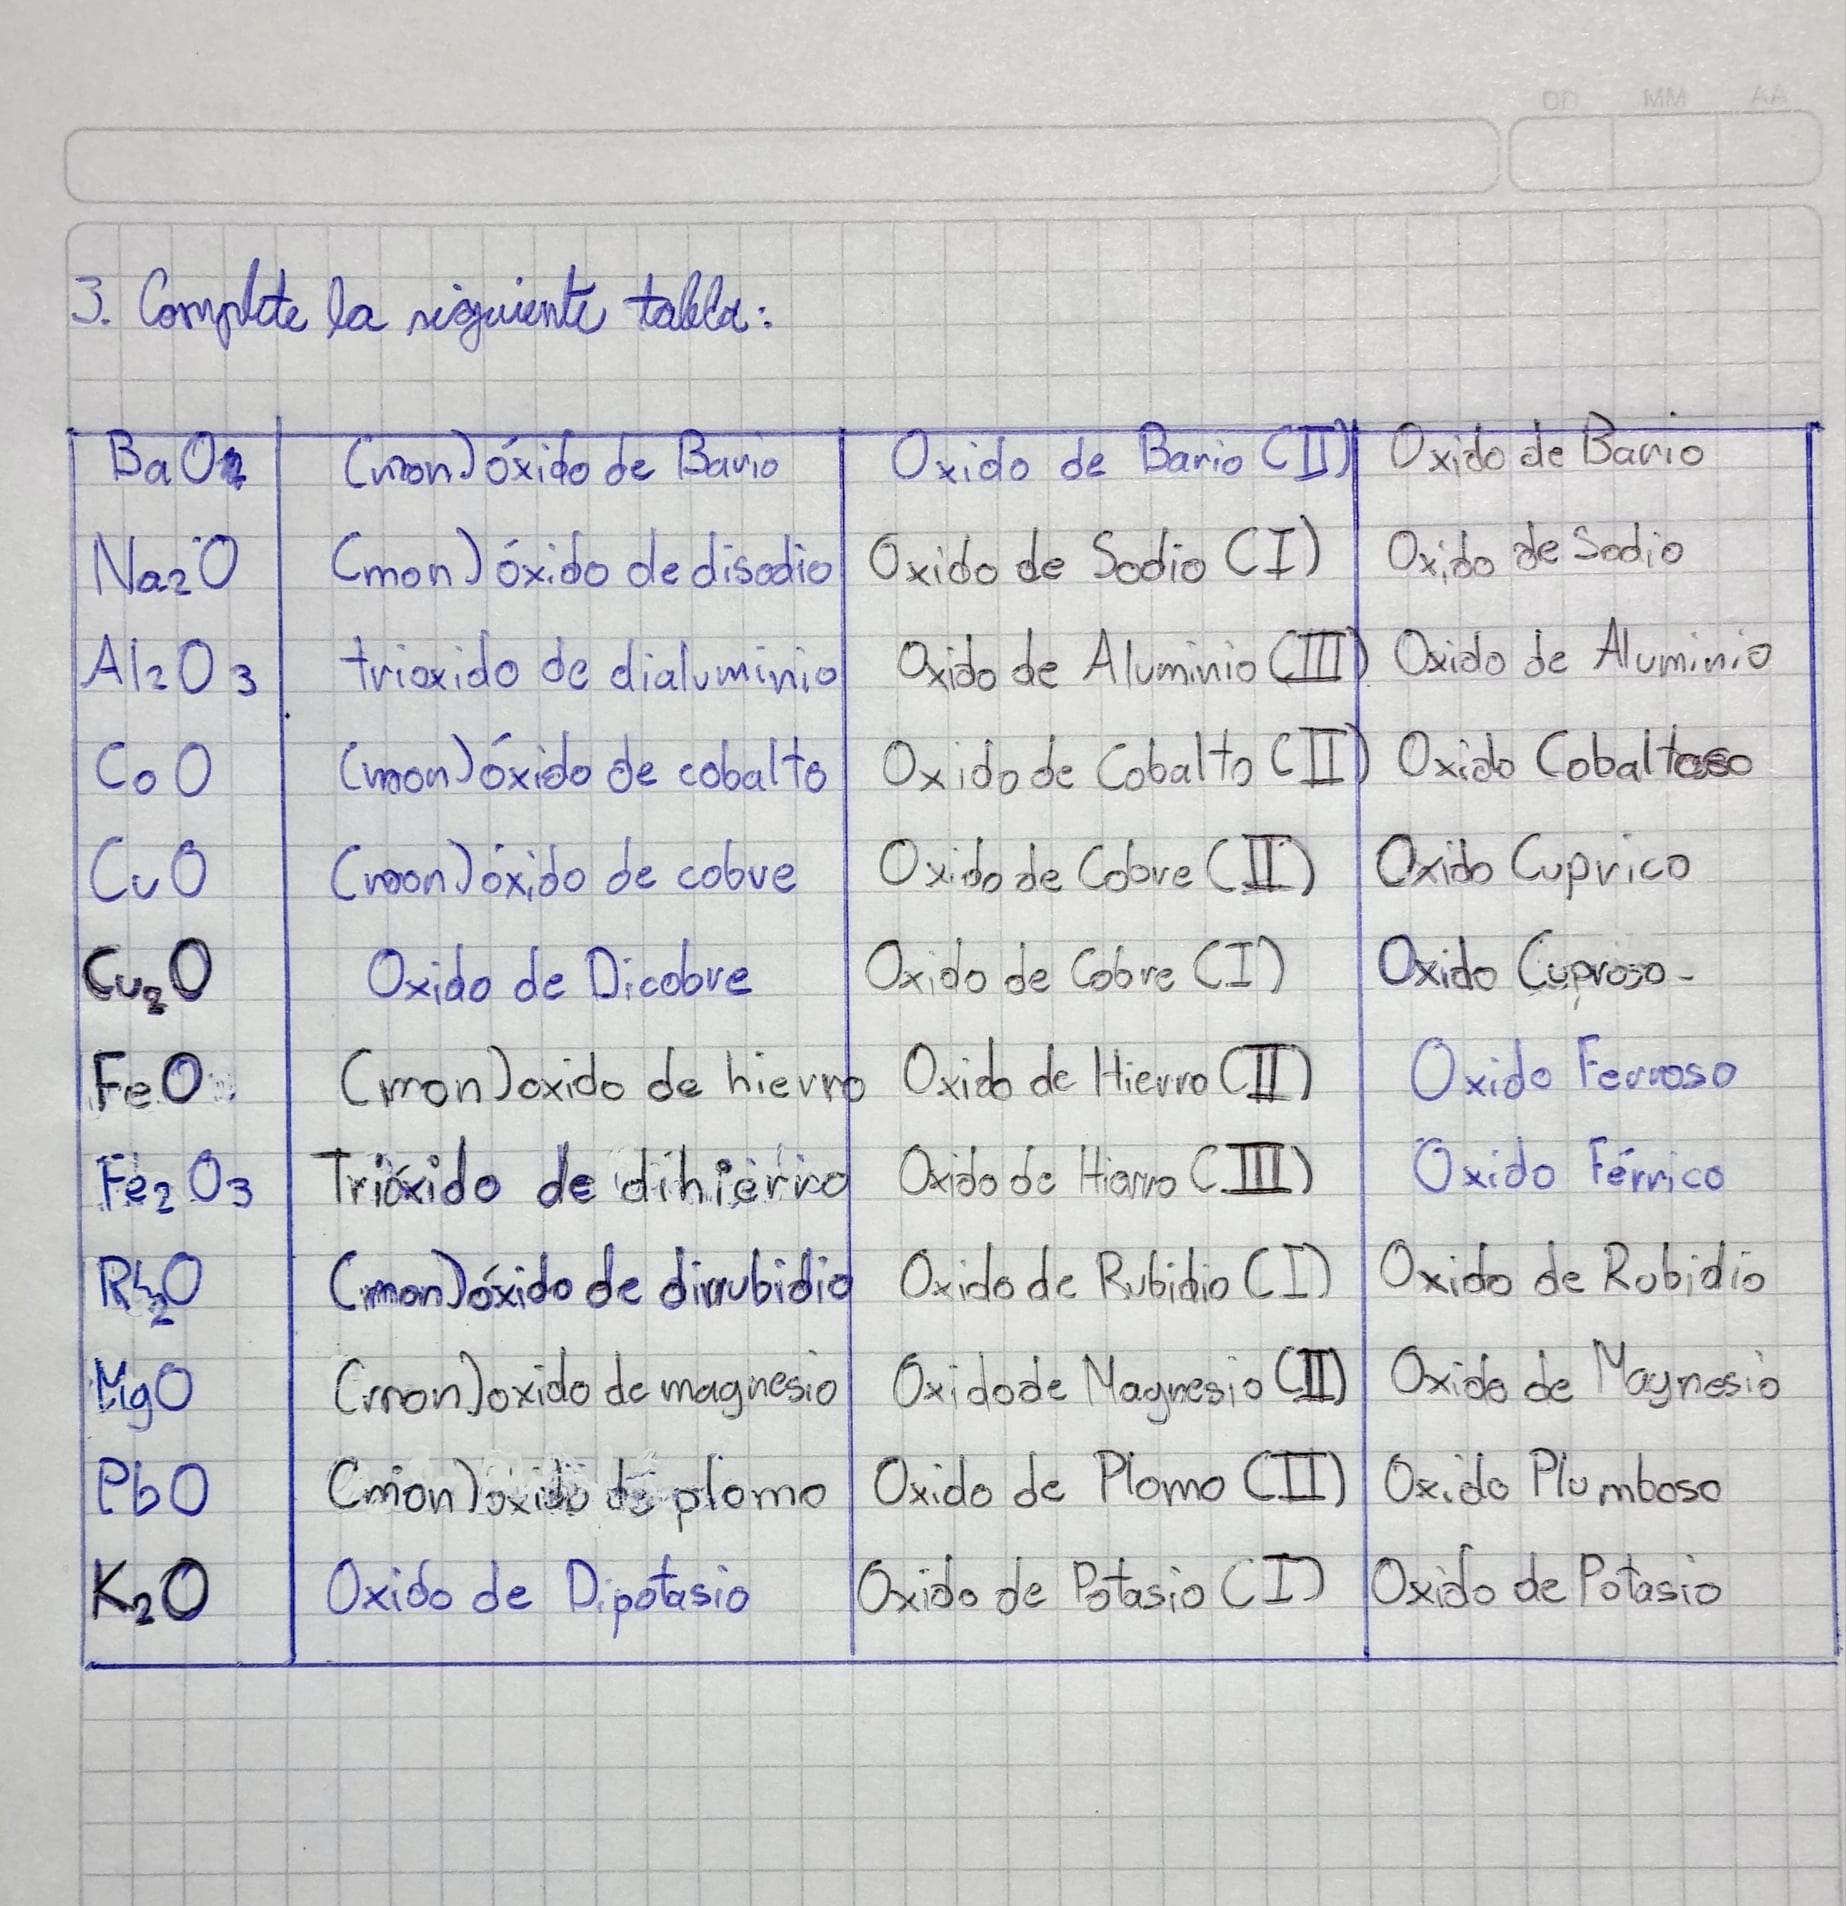 DD MM AA
3. Complete la siguiente tabla:
BaO2 (mon)óxido de Bario Oxido de Bario (II) Oxido de Bario
Na2O (mon)óxido de disodio Oxido de Sodio (I) Oxido de Sodio
Al2O3 trioxido de dialuminio Oxido de Aluminio (III) Oxido de Aluminio
CoO (mon)óxido de cobalto Oxido de Cobalto (II) Oxido Cobaltoso
CuO (mon)óxido de cobre Oxido de Cobre (II) Oxido Cuprico
Cu2O Oxido de Dicobre Oxido de Cobre (I) Oxido Cuproso-
FeO (mon)oxido de hierro Oxido de Hierro (II) Oxido Ferroso
Fe2O3 Trióxido de dihierro Oxido de Hierro (III) Oxido Férrico
Rb2O (mon)óxido de dirrubidio Oxido de Rubidio (I) Oxido de Rubidio
MgO (mon)oxido de magnesio Oxido de Magnesio (II) Oxido de Magnesio
PbO (mon)oxido de plomo Oxido de Plomo (II) Oxido Plumboso
K2O Oxido de Dipotasio Oxido de Potasio (I) Oxido de Potasio